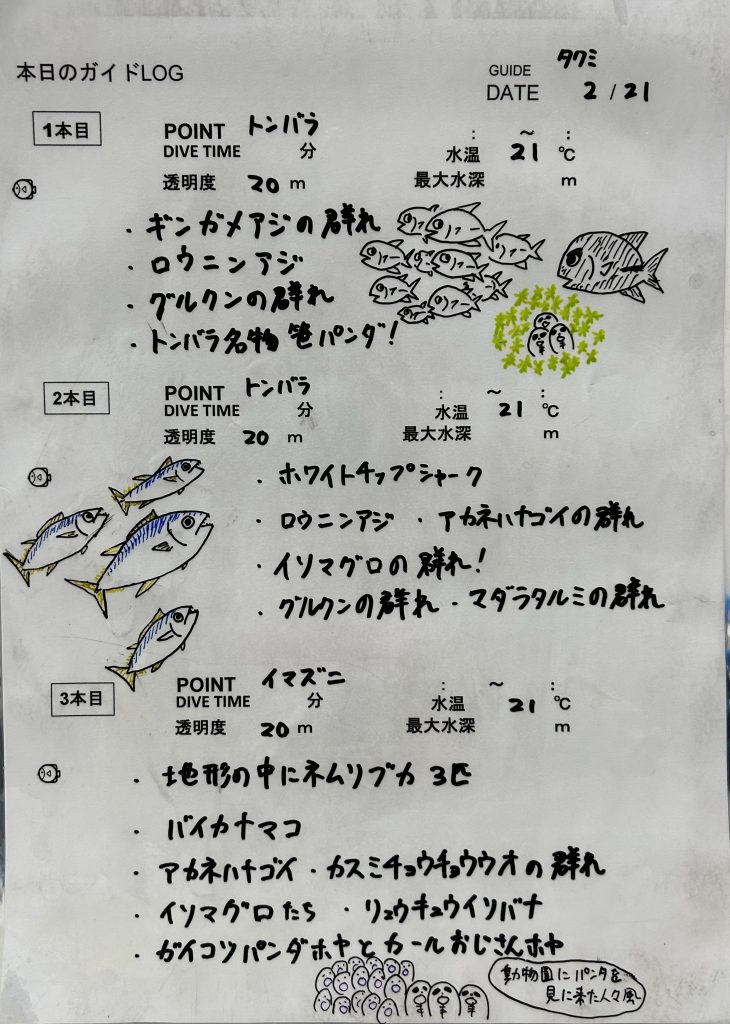 本日のガイドLOG
GUIDE タクミ
DATE 2/21
1本目
POINT トンバラ : ～ :
DIVE TIME 分 水温 21 ℃
透明度 20 m 最大水深 m
・ギンガメアジの群れ
・ロウニンアジ
・グルクンの群れ
・トンバラ名物 笹パンダ!
2本目
POINT トンバラ : ～ :
DIVE TIME 分 水温 21 ℃
透明度 20 m 最大水深 m
・ホワイトチップシャーク
・ロウニンアジ ・アカネハナゴイの群れ
・イソマグロの群れ!
・グルクンの群れ・マダラタルミの群れ
3本目
POINT イマズニ : ～ :
DIVE TIME 分 水温 21 ℃
透明度 20 m 最大水深 m
・地形の中にネムリブカ 3匹
・バイカナマコ
・アカネハナゴイ・カスミチョウチョウウオの群れ
・イソマグロたち ・リュウキュウイソバナ
・ガイコツパンダホヤとカールおじさんホヤ
動物園にパンダを
見に来た人々風